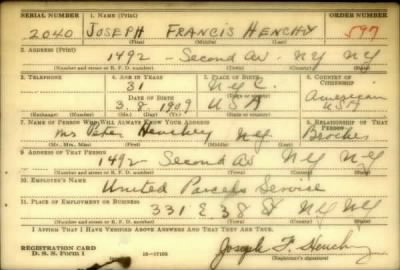 SERIAL NUMBER 1. NAME (Print) ORDER NUMBER
2040 JOSEPH FRANCIS HENCHY 597
(First) (Middle) (Last)
2. ADDRESS (Print)
1492 - Second Av - NY NY
(Number and street or R. F. D. number) (Town) (County) (State)
3. TELEPHONE 4. AGE IN YEARS 5. PLACE OF BIRTH 6. COUNTRY OF CITIZENSHIP
31 N.Y.C.
DATE OF BIRTH American
3. 8. 1909 USA USA
(Exchange) (Number) (Mo.) (Day) (Yr.) (State or country)
7. NAME OF PERSON WHO WILL ALWAYS KNOW YOUR ADDRESS 8. RELATIONSHIP OF THAT PERSON
Mrs Peter Henchey NY
(Mr., Mrs., Miss) (First) (Middle) (Last)
9. ADDRESS OF THAT PERSON
1492 - Second Av NY NY
(Number and street or R. F. D. number) (Town) (County) (State)
10. EMPLOYER'S NAME
United Parcels Servise
11. PLACE OF EMPLOYMENT OR BUSINESS
331 E 38 St NY NY
(Number and street or R. F. D. number) (Town) (County) (State)
I AFFIRM THAT I HAVE VERIFIED ABOVE ANSWERS AND THAT THEY ARE TRUE.
REGISTRATION CARD
D. S. S. Form 1 16-17105 Joseph F. Henchy
(Registrant's signature)